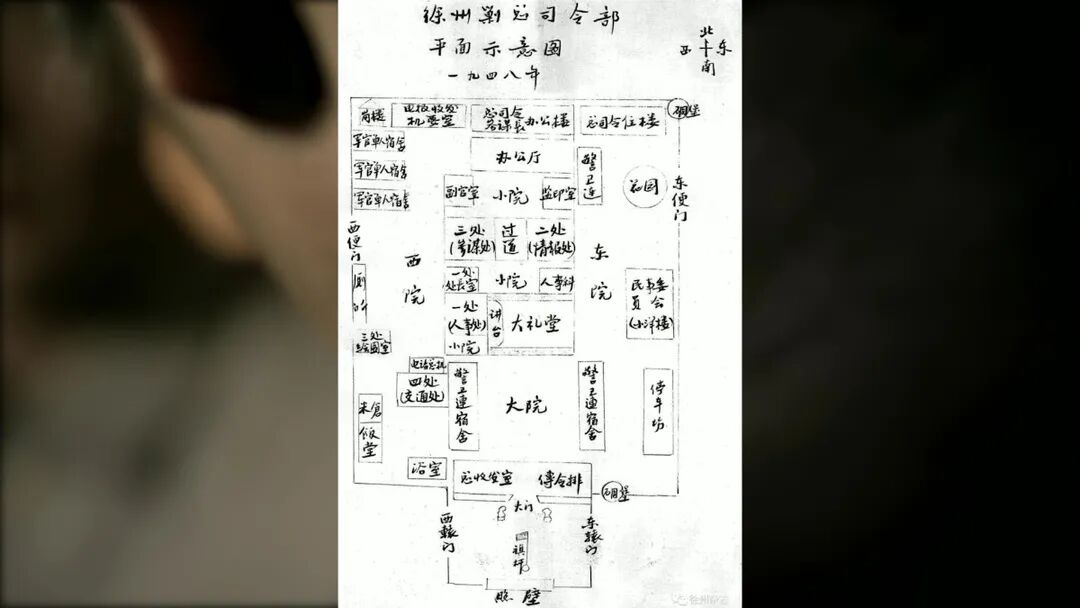 徐州剿总司令部
平面示意图
一九四八年
北
西 东
南
岗楼
电报收发
机要室
总司令
参谋长 办公楼
总司令住楼
碉堡
军官单人宿舍
军官单人宿舍
军官单人宿舍
办公厅
警卫连
花园
东便门
副官室
小院
监印室
西便门
三处
(参谋处)
过道
二处
(情报处)
西院
东院
厕所
一处
处长室
小院
人事科
民事委
员会
(小洋楼)
一处
(人事处)
讲台
大礼堂
小院
三处
绘图室
电话总机
四处
(交通处)
警卫连宿舍
大院
警卫连宿舍
停车场
米仓
饭堂
浴室
总收发室
传令排
碉堡
大门
西辕门
东辕门
旗杆
照壁